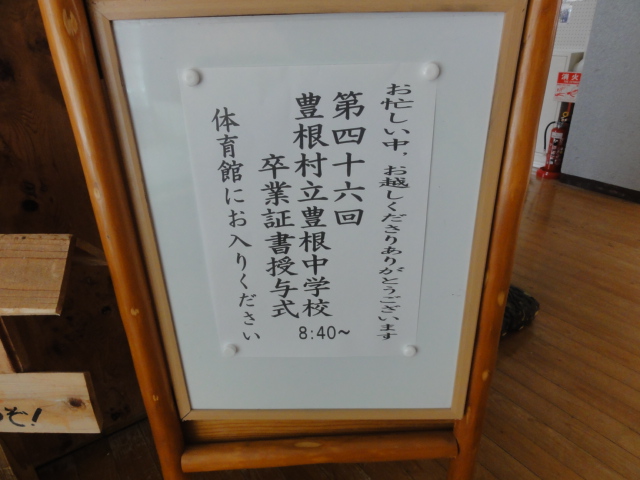 お忙しい中、お越しくださりありがとうございます
第四十六回
豊根村立豊根中学校
卒業証書授与式
8:40～
体育館にお入りください
消火
ぞ!